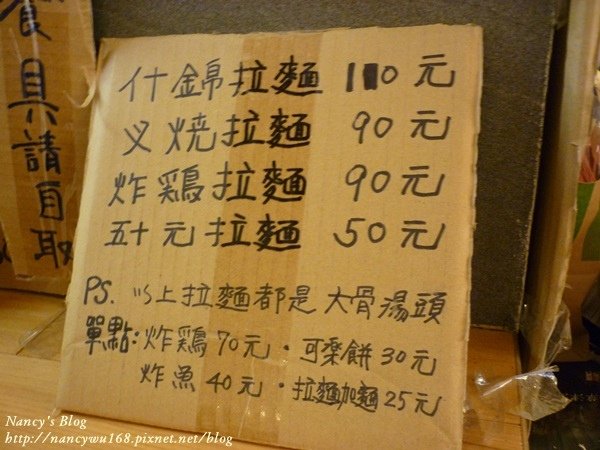 餐具請自取
什錦拉麵 110元
叉燒拉麵 90元
炸鷄拉麵 90元
五十元拉麵 50元
PS. 以上拉麵都是大骨湯頭
單點:炸鷄70元·可樂餅30元
炸魚40元·拉麵加麵25元
Nancy's Blog
http://nancywu168.pixnet.net/blog